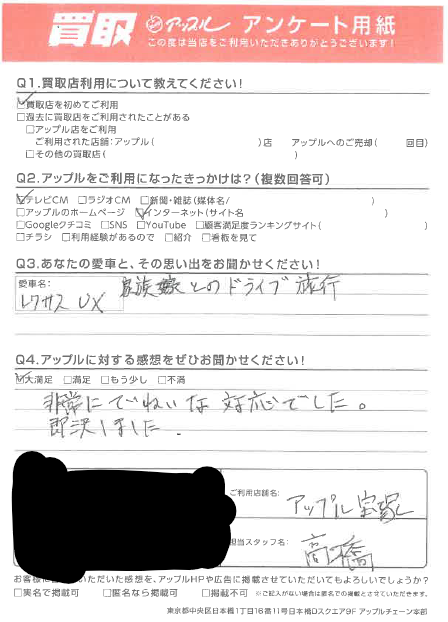 買取 アップル アンケート用紙
この度は当店をご利用いただきありがとうございます！
Q1.買取店利用について教えてください！
☑買取店を初めてご利用
□過去に買取店をご利用されたことがある
□アップル店をご利用
ご利用された店舗：アップル（ ）店 アップルへのご売却（ 回目）
□その他の買取店（ ）
Q2.アップルをご利用になったきっかけは？（複数回答可）
☑テレビCM □ラジオCM □新聞・雑誌（媒体名/ ）
□アップルのホームページ ☑インターネット（サイト名 ）
□Googleクチコミ □SNS □YouTube □顧客満足度ランキングサイト（ ）
□チラシ □利用経験があるので □紹介 □看板を見て
Q3.あなたの愛車と、その思い出をお聞かせください！
愛車名：
レクサス UX 家族嫁とのドライブ旅行
Q4.アップルに対する感想をぜひお聞かせください！
☑大満足 □満足 □もう少し □不満
非常にていねいな対応でした。
即決しました.
ご利用店舗名：
アップル宝塚
担当スタッフ名：
高橋
お客様に いただいた感想を、アップルHPや広告に掲載させていただいてもよろしいでしょうか？
□実名で掲載可 □匿名なら掲載可 □掲載不可 ※ご記入がない場合は匿名での掲載とさせていただきます。
東京都中央区日本橋1丁目16番11号日本橋Dスクエア9F アップルチェーン本部